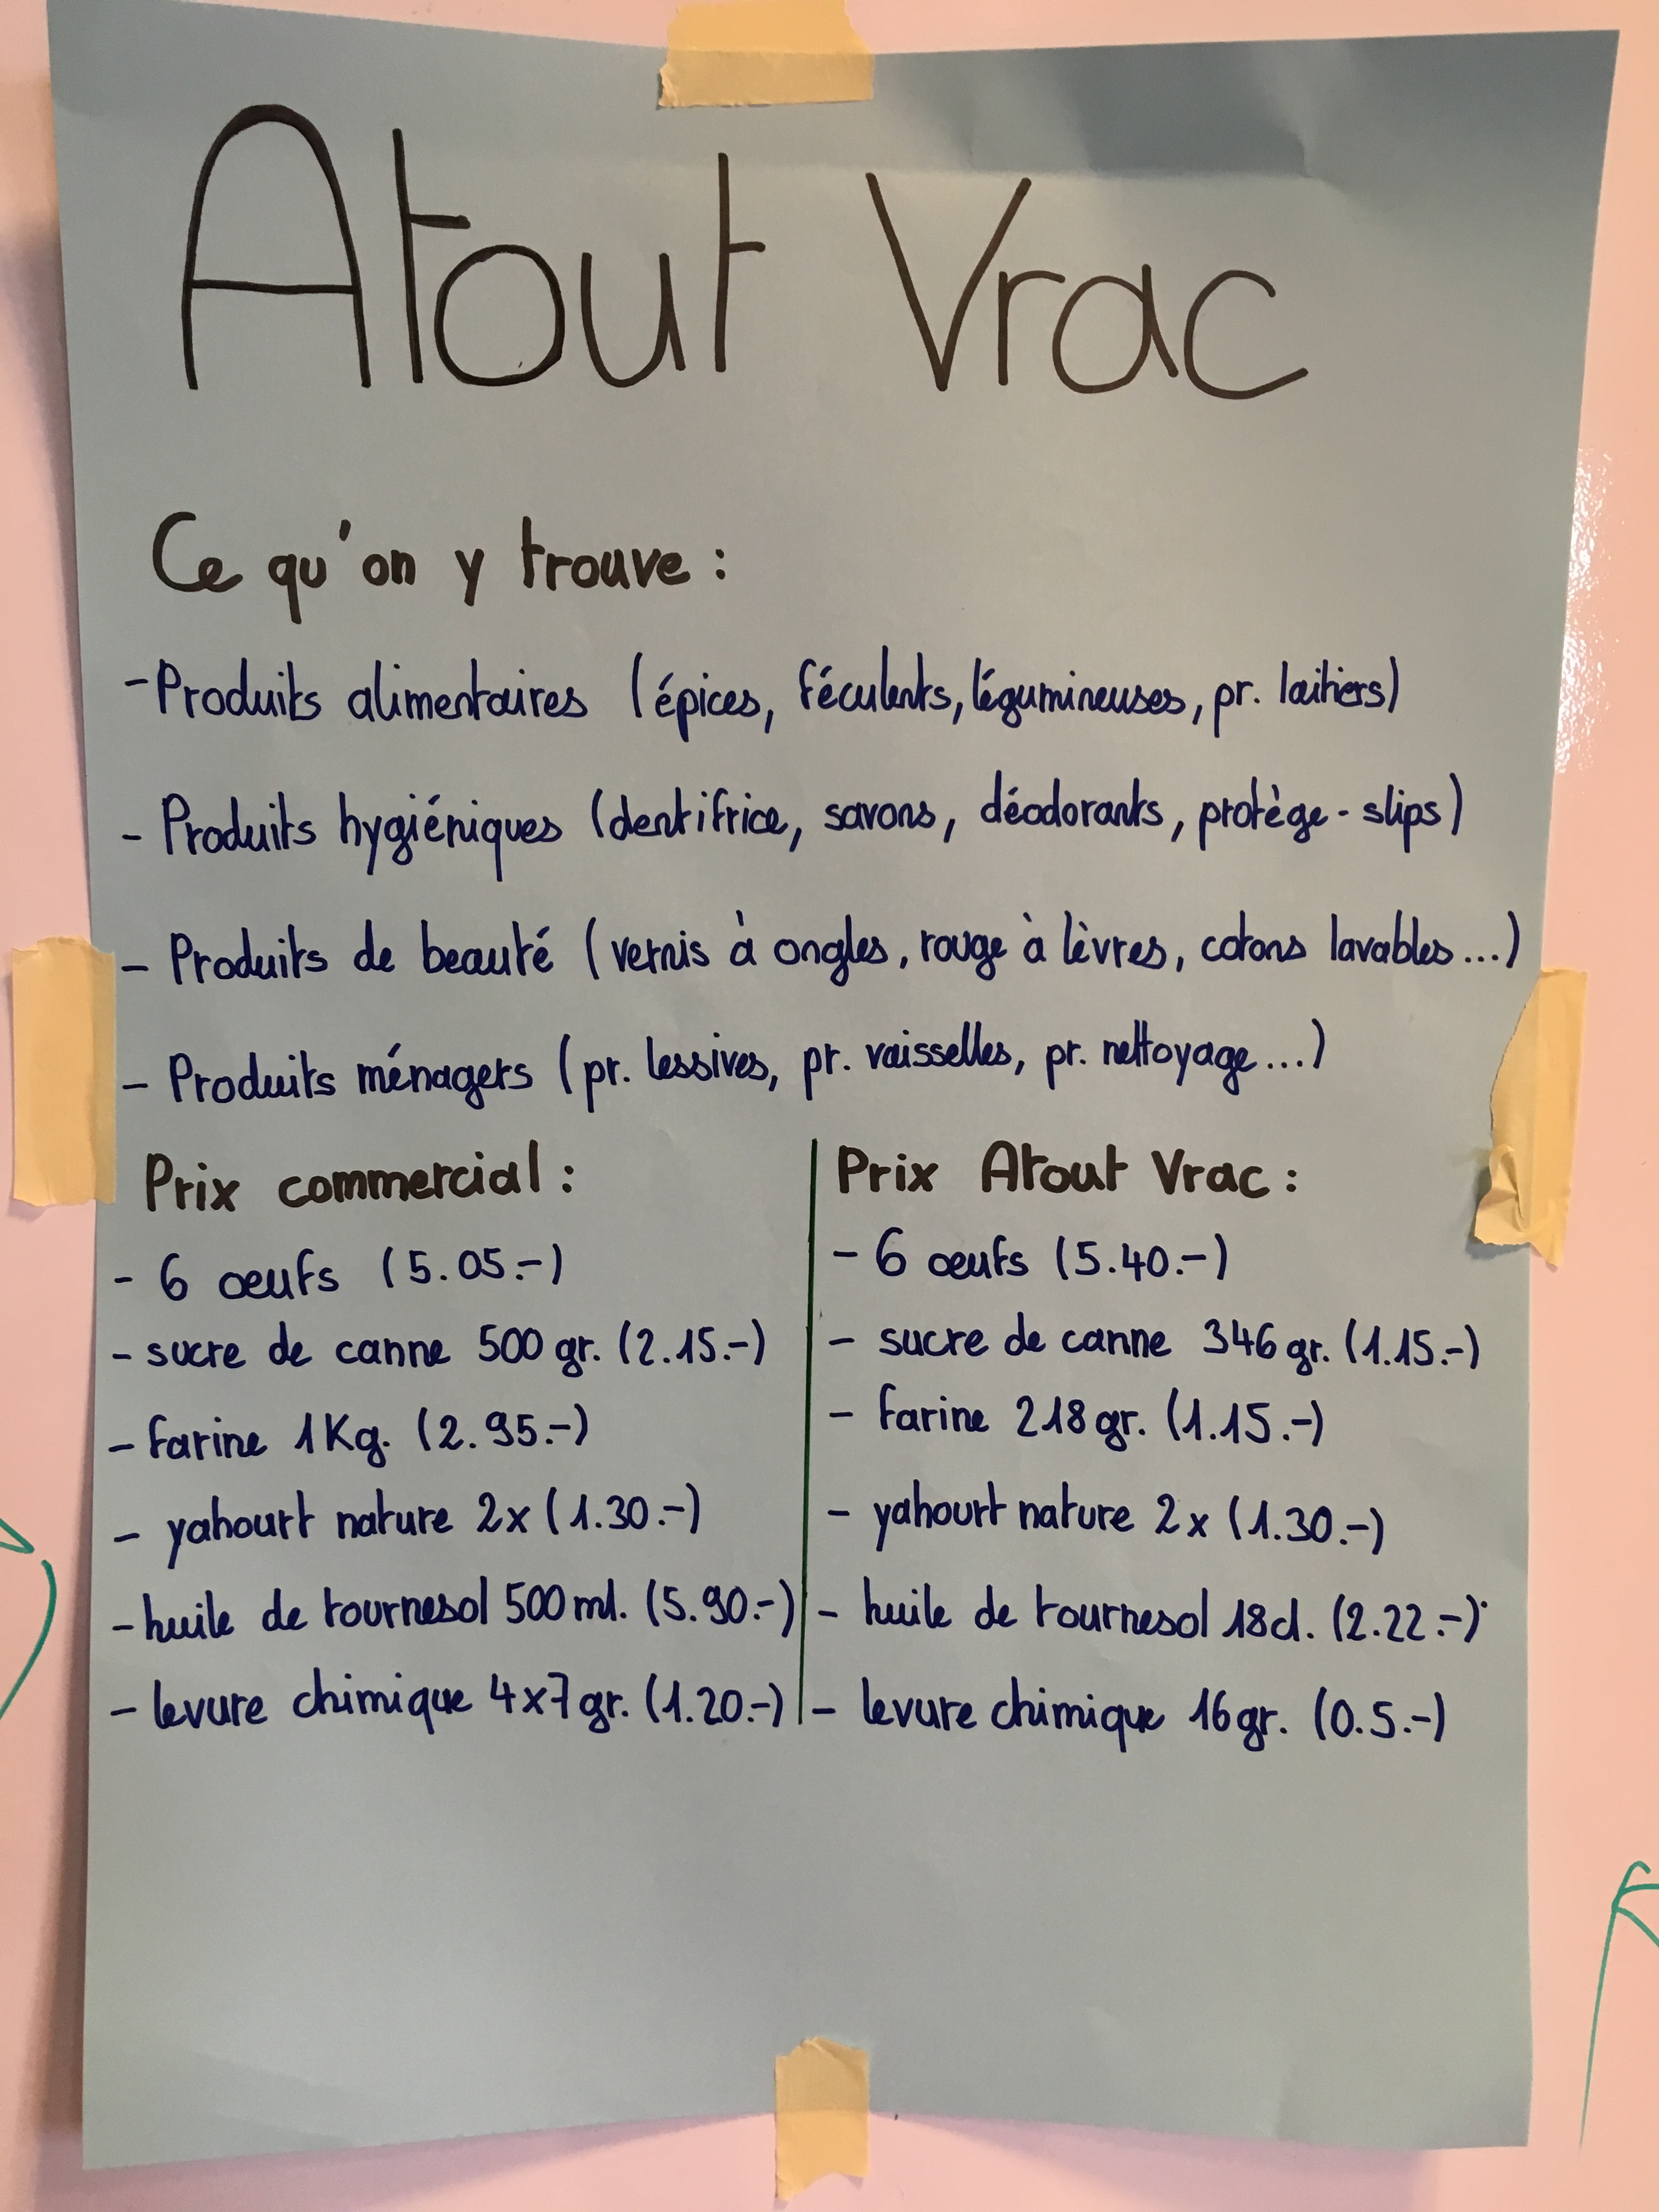 Atout Vrac
Ce qu'on y trouve :
- Produits alimentaires (épices, féculents, légumineuses, pr. laitiers)
- Produits hygiéniques (dentifrice, savons, déodorants, protège-slips)
- Produits de beauté (vernis à ongles, rouge à lèvres, cotons lavables...)
- Produits ménagers (pr. lessives, pr. vaisselles, pr. nettoyage...)
Prix commercial :
- 6 oeufs (5.05.-)
- sucre de canne 500 gr. (2.15.-)
- farine 1Kg. (2.95.-)
- yahourt nature 2x (1.30.-)
- huile de tournesol 500 ml. (5.90.-)
- levure chimique 4x7gr. (1.20.-)
Prix Atout Vrac :
- 6 oeufs (5.40.-)
- sucre de canne 346 gr. (1.15.-)
- farine 218 gr. (1.15.-)
- yahourt nature 2x (1.30.-)
- huile de tournesol 18cl. (2.22.-)
- levure chimique 16gr. (0.5.-)